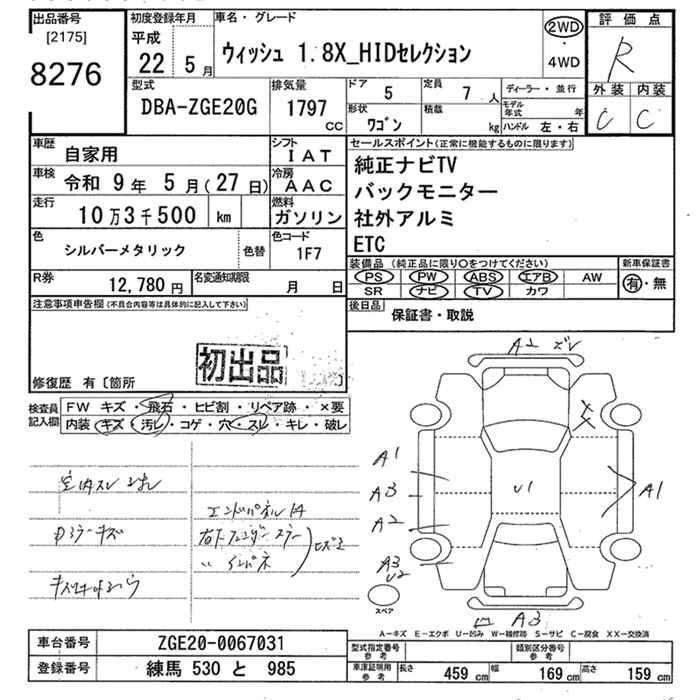 出品番号
[2175]
8276
初度登録年月
平成
22 5月
車名・グレード
ウィッシュ 1.8X_HIDセレクション
2WD
・
4WD
評価点
R
外装 内装
C C
型式
DBA-ZGE20G
排気量
1797
CC
ドア 5
定員 7人
形状
ワゴン
積載
kg
ディーラー・並行
モデル年式 年
ハンドル 左・右
車歴 自家用
シフト
IAT
車検 令和 9年 5月(27日)
冷房
AAC
走行 10万3千500 km
燃料
ガソリン
色 シルバーメタリック 色替
色コード
1F7
R券 12,780円
名変通知期限 月 日
セールスポイント(正常に機能するものに限ります)
純正ナビTV
バックモニター
社外アルミ
ETC
装備品(純正品に限り○をつけてください)
PS PW ABS エアB AW
SR ナビ TV カワ
新車保証書
有・無
後日品
保証書・取説
注意事項申告欄(不具合内容等は具体的に記入して下さい)
初出品
修復歴 有〔箇所 〕
検査員記入欄
FW キズ・飛石・ヒビ割・リペア跡・×要
内装・キズ・汚レ・コゲ・穴・スレ・キレ・破レ
A2 ズレ
A1
A3
A2
A3
U2
U1
A1
A3
スペア
A-キズ E-エクボ U-凹み W-補修跡 S-サビ C-腐食 XX-交換済
車台番号 ZGE20-0067031
登録番号 練馬 530 と 985
型式指定番号
参考
類別区分番号
参考
車庫証明用
参考
長さ 459 cm
幅 169 cm
高さ 159 cm